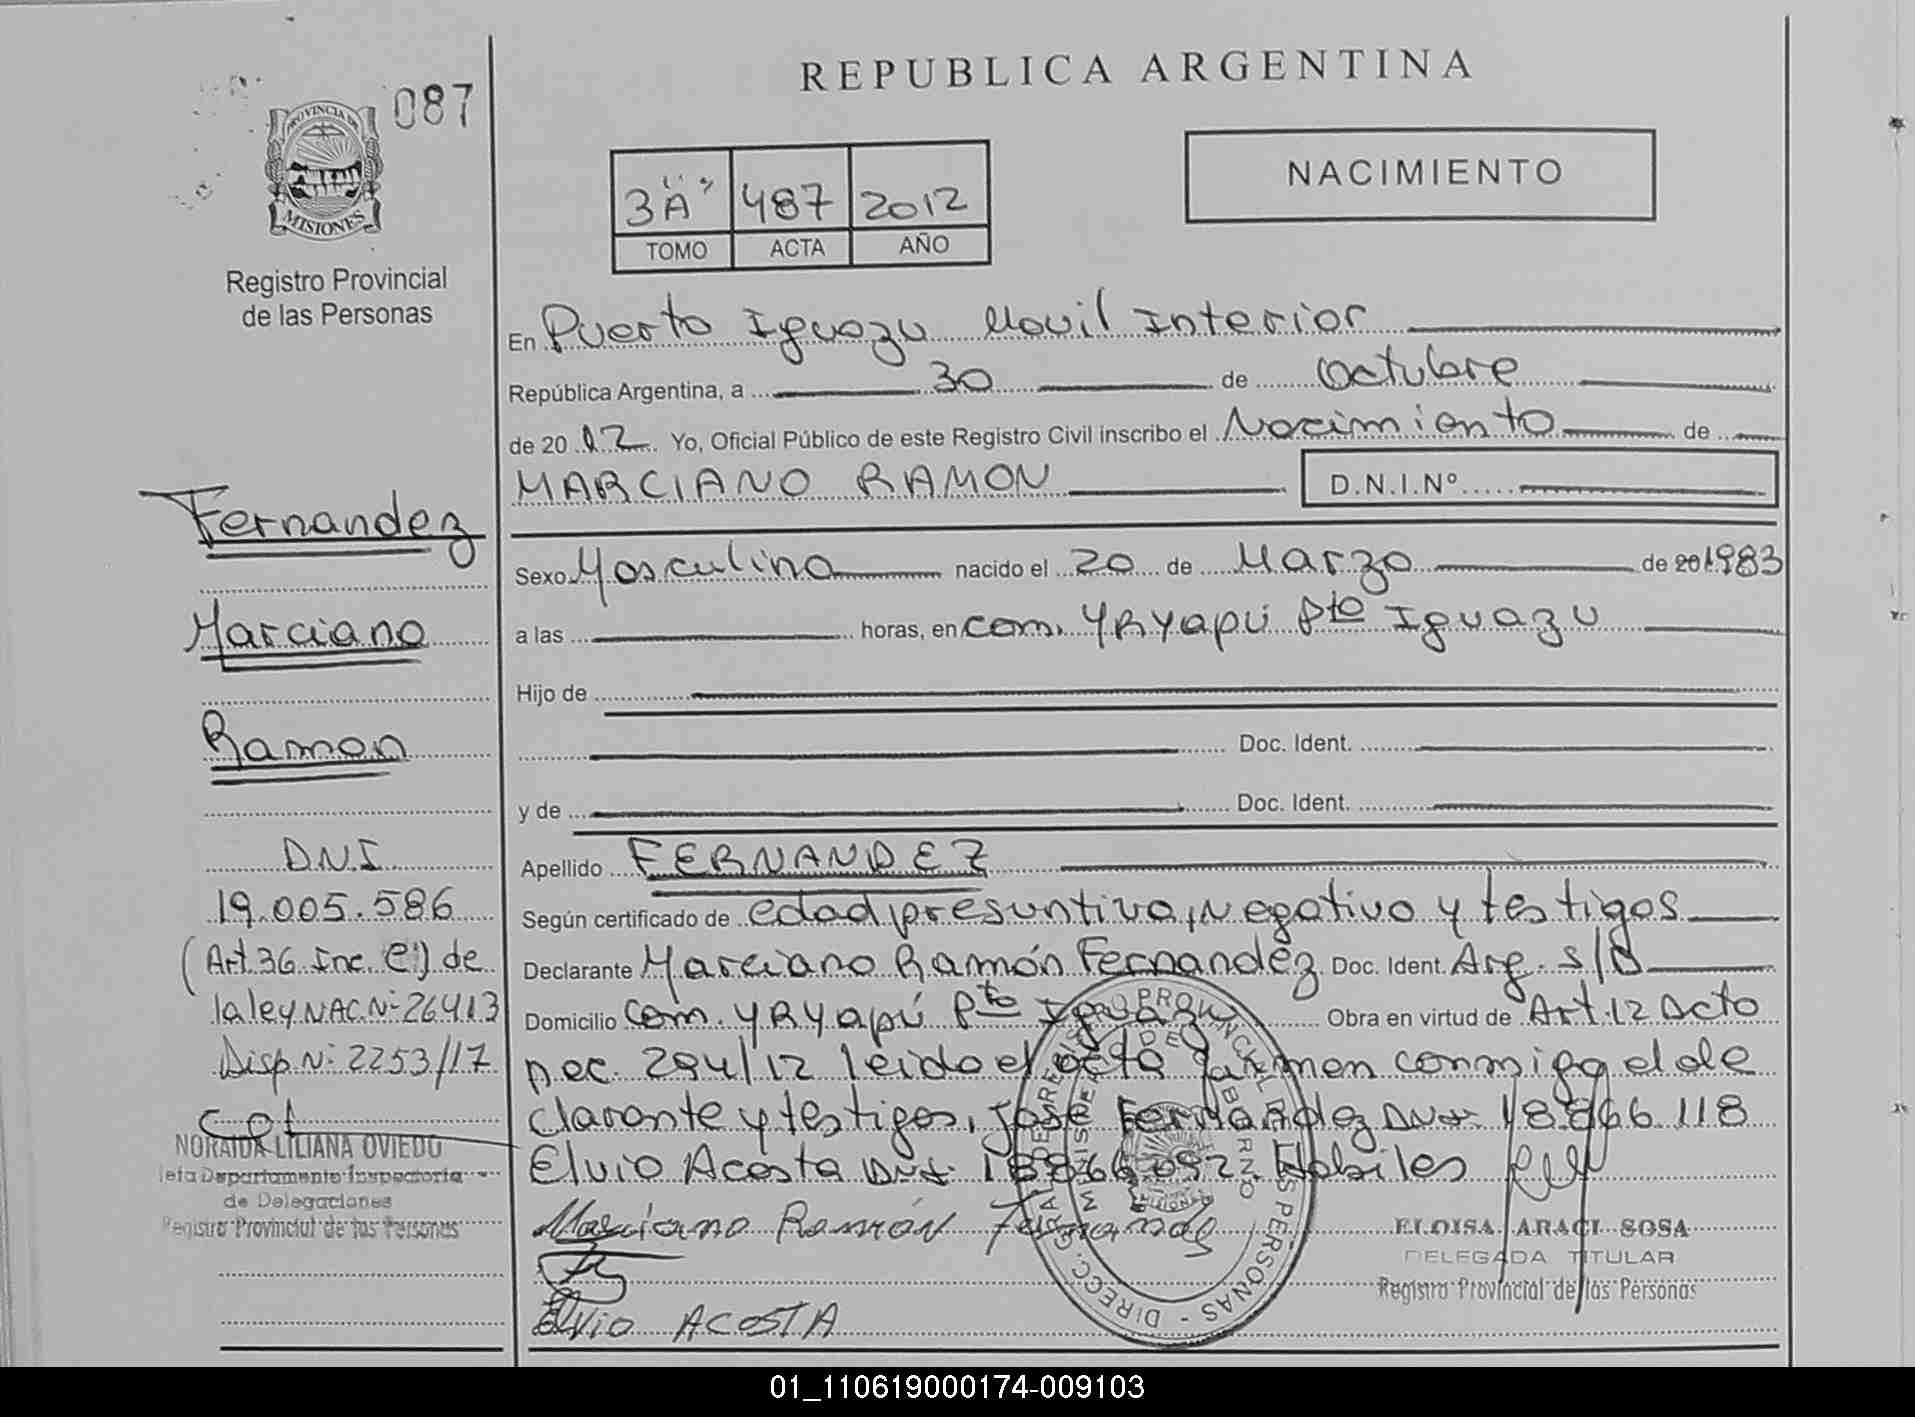 087
PROVINCIA DE
MISIONES
Registro Provincial
de las Personas
REPUBLICA ARGENTINA
3 "A" 487 2012
TOMO ACTA AÑO
NACIMIENTO
En Puerto Iguazu Movil Interior
República Argentina, a 30 de Octubre
de 2012 Yo, Oficial Público de este Registro Civil inscribo el Nacimiento de
MARCIANO RAMON D.N.I.Nº
Sexo Masculino nacido el 20 de Marzo de 20 1983
a las horas, en com. YRYapú Pto Iguazu
Hijo de
Doc. Ident.
y de Doc. Ident.
Apellido FERNANDEZ
Según certificado de edad presuntiva, Negativo y testigos
Declarante Marciano Ramón Fernandez Doc. Ident. Arg. s/D
Domicilio com. YRYapú Pto Iguazu Obra en virtud de Art. 12 Dcto
nec. 294/12 leido el acta firman conmigo el de
clarante y testigos, José Fernandez DNI 18.866.118
Elvio Acosta DNI 18866092. Habiles
Marciano Ramón Fernandez
Elvio ACOSTA
ELOISA ARACI SOSA
DELEGADA TITULAR
Registro Provincial de las Personas
Fernandez
Marciano
Ramon
D.N.I
19.005.586
(Art. 36 Inc. e) de
la ley NAC. Nº 26413
Disp. Nº 2253/17
NORAIDA LILIANA OVIEDO
Jefa Departamento Inspectoria
de Delegaciones
Registro Provincial de las Personas
01_110619000174-009103